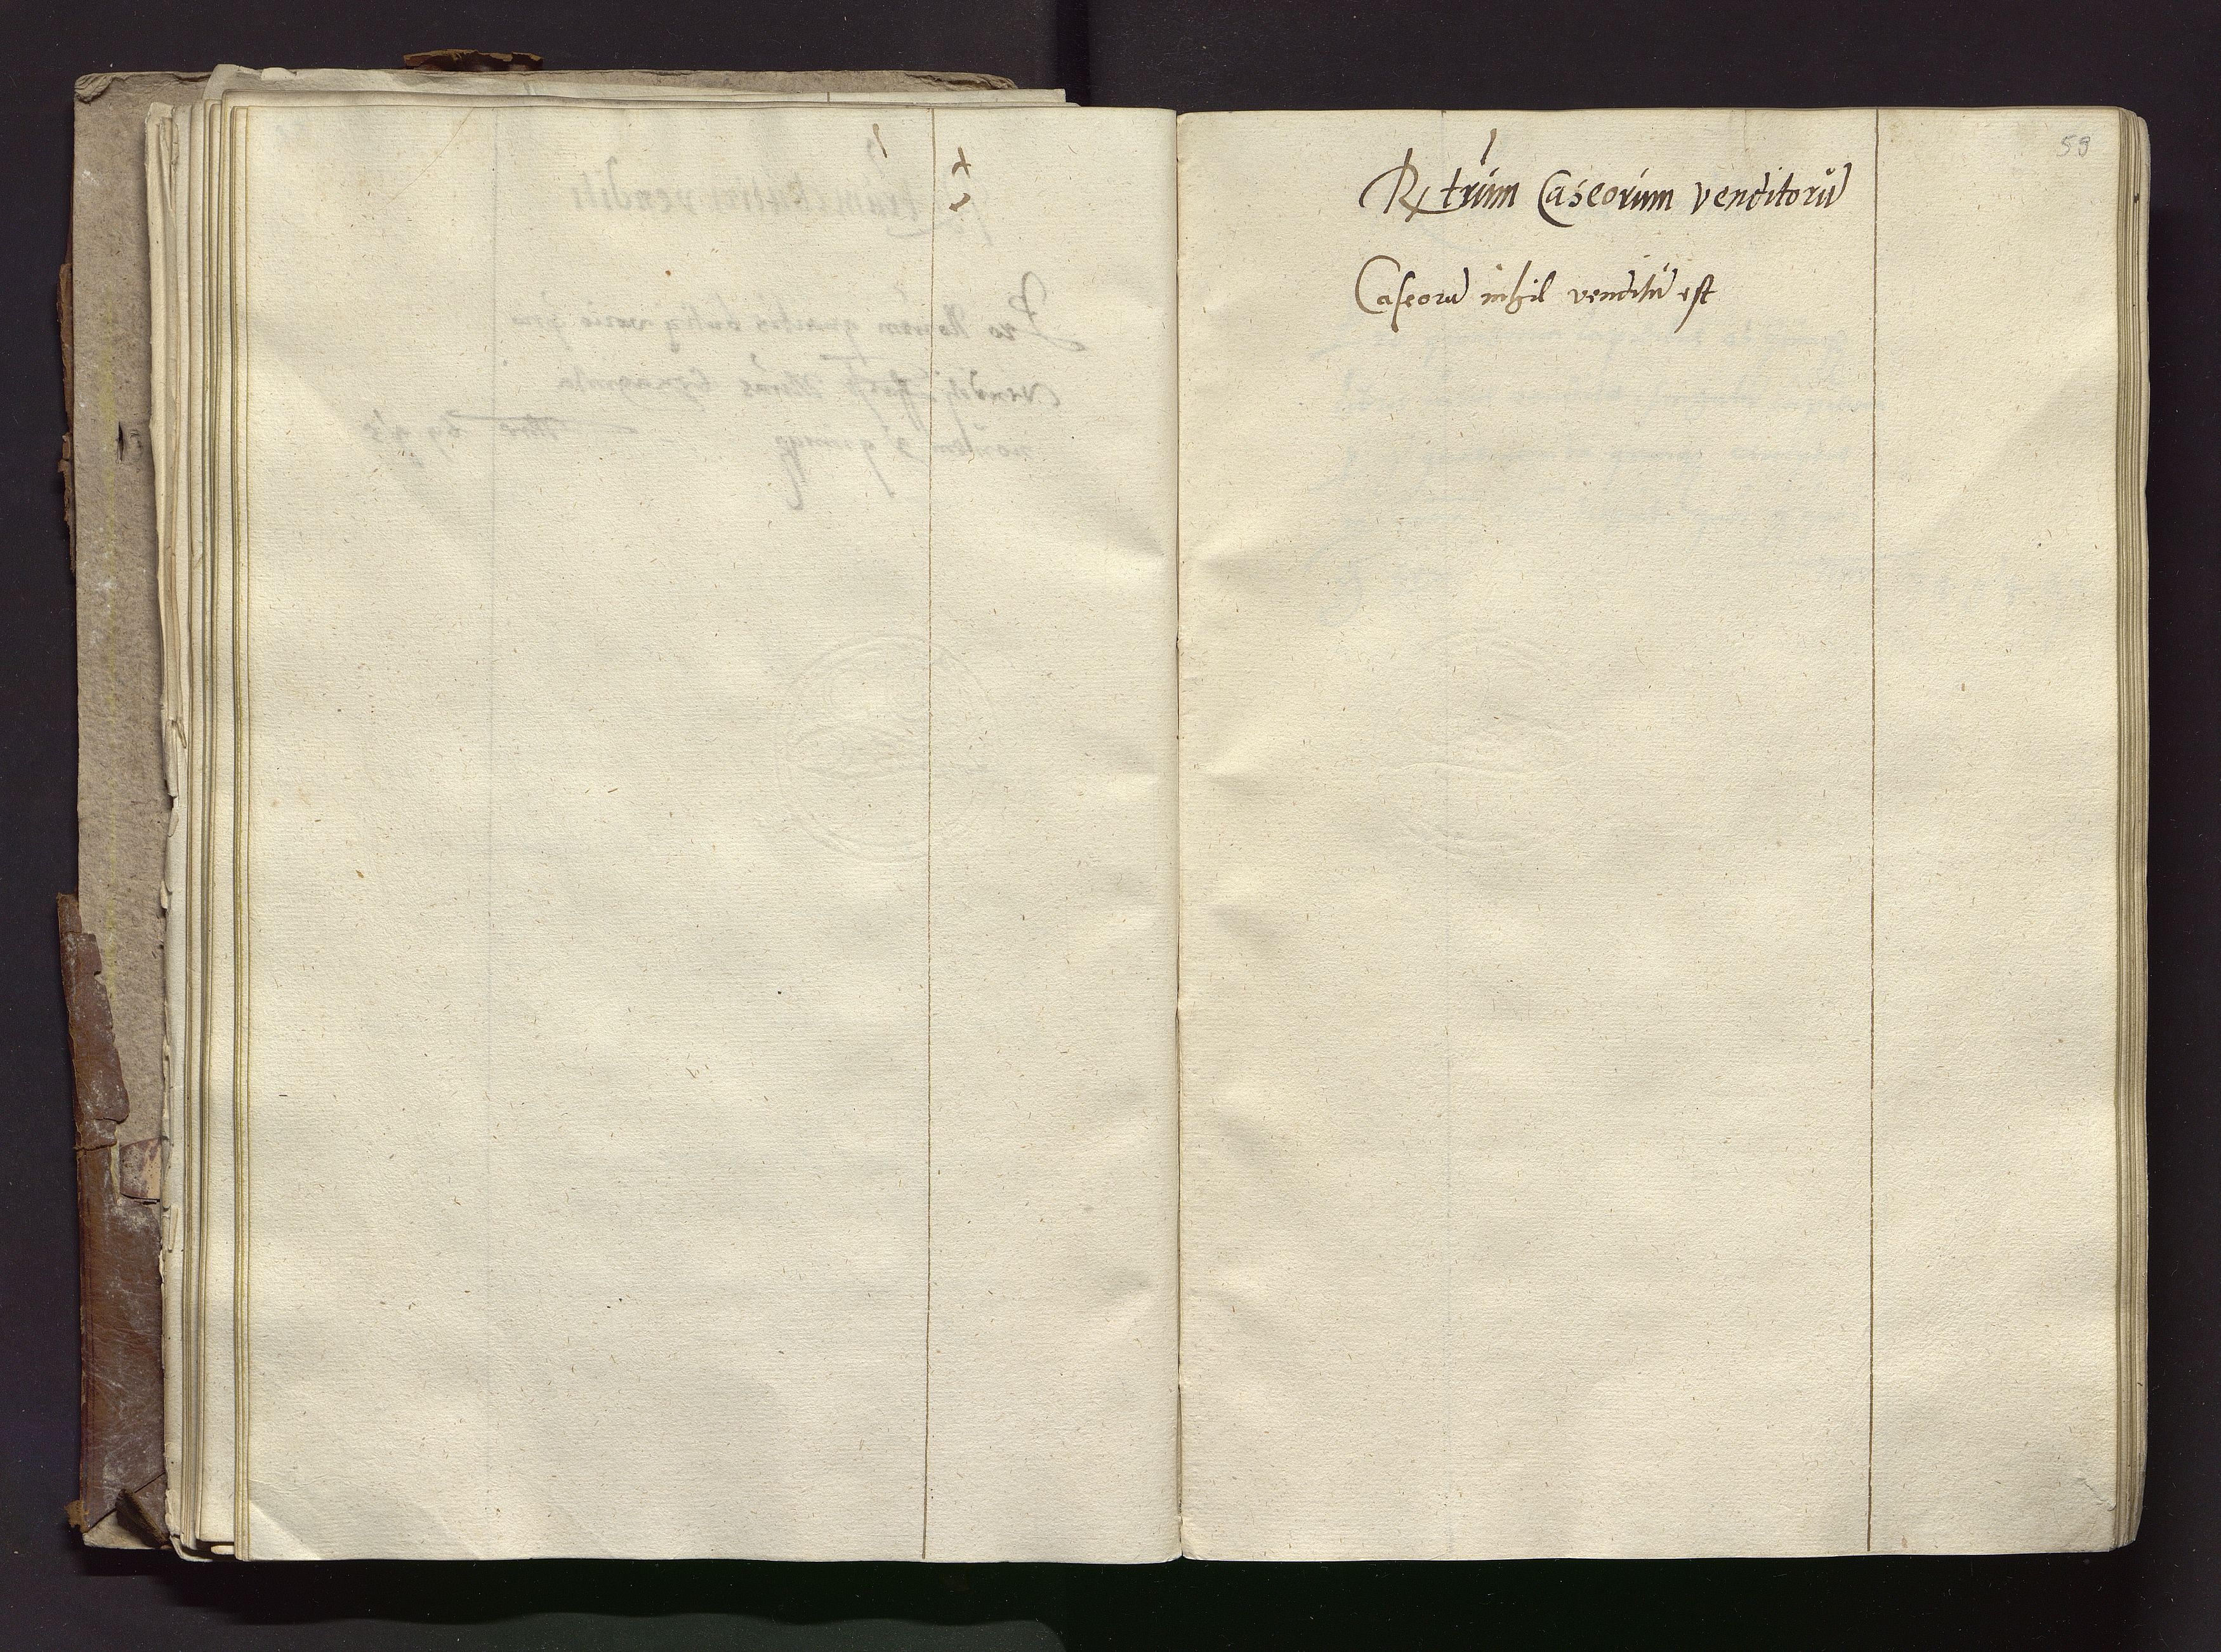 59
Rtrum Caseorum venditorū
Caseorū nihil venditū est